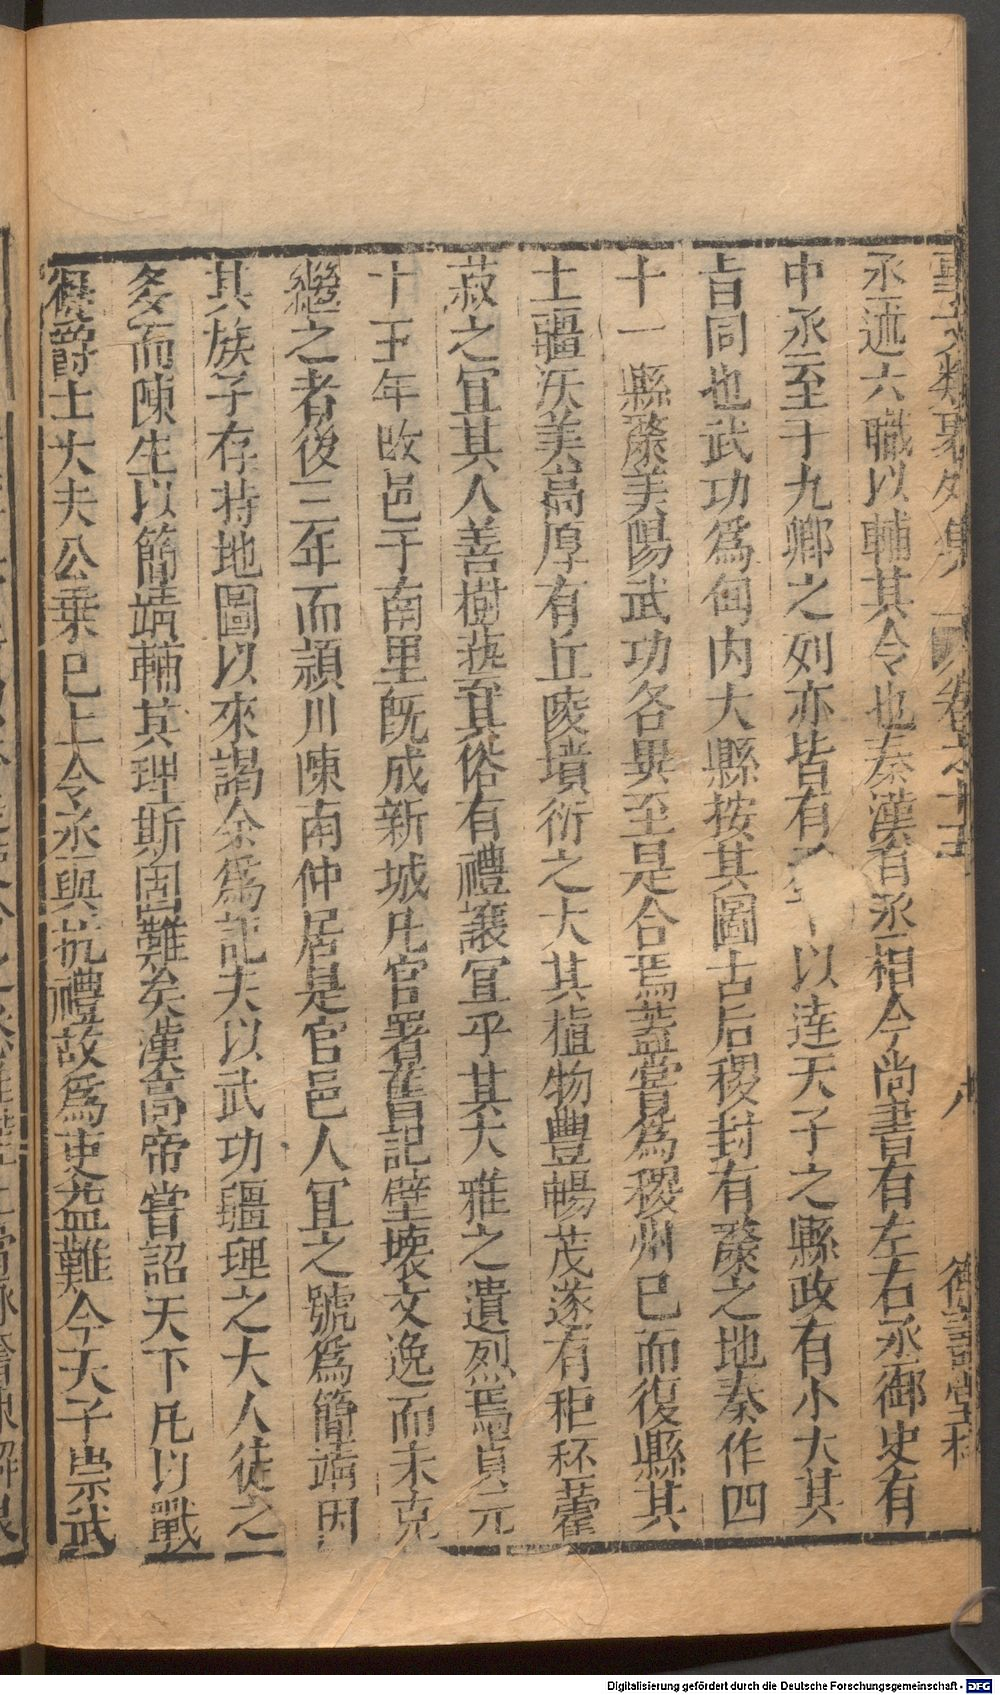 事文類聚外集 卷之十五 八 德壽堂梓
丞述六職以輔其令也秦漢有丞相今尚書有左右丞御史有
中丞至于九卿之列亦皆有 以達天子之縣政有小大其
旨同也武功爲甸内大縣按其圖古后稷封有漦之地秦作四
十一縣漦美陽武功各異至是合焉蓋嘗爲稷州已而復縣其
土疆沃美高厚有丘陵墳衍之大其植物豐暢茂遂有秬秠藿
菽之宜其人善樹蓺其俗有禮讓宜乎其大雅之遺烈焉貞元
十五年改邑于南里旣成新城凡官署舊記壁壊文逸而未克
繼之者後三年而潁川陳南仲居是官邑人宜之號爲簡靖因
其族子存持地圖以來謁余爲記夫以武功疆理之大人徒之
多而陳生以簡靖輔其理斯固難矣漢高帝嘗詔天下凡以戰
得爵士大夫公乗已上令丞與抗禮故爲吏益難今天子崇武
Digitalisierung gefördert durch die Deutsche Forschungsgemeinschaft - DFG